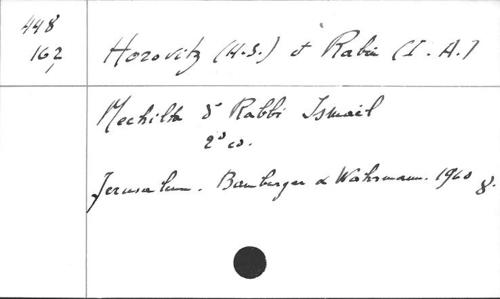 448
162
Horovitz (H.S.) & Rabin (I. A.)
Mechilta d' Rabbi Ismael
2° co.
Jerusalem. Bamberger & Wahrmann. 1960
8.